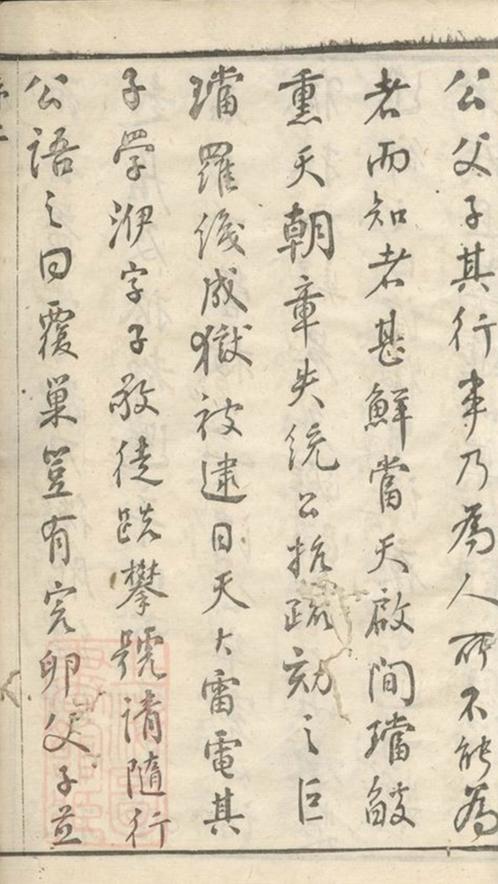 公父子其行事乃為人所不能為
者而知者甚鮮當天啟間璫𦦨
熏天朝章失統公抗疏劾之巨
璫羅織成獄被逮日天大雷電其
子學洢字子敬徒跣攀號請隨行
公語之曰覆巢豈有完卵父子並